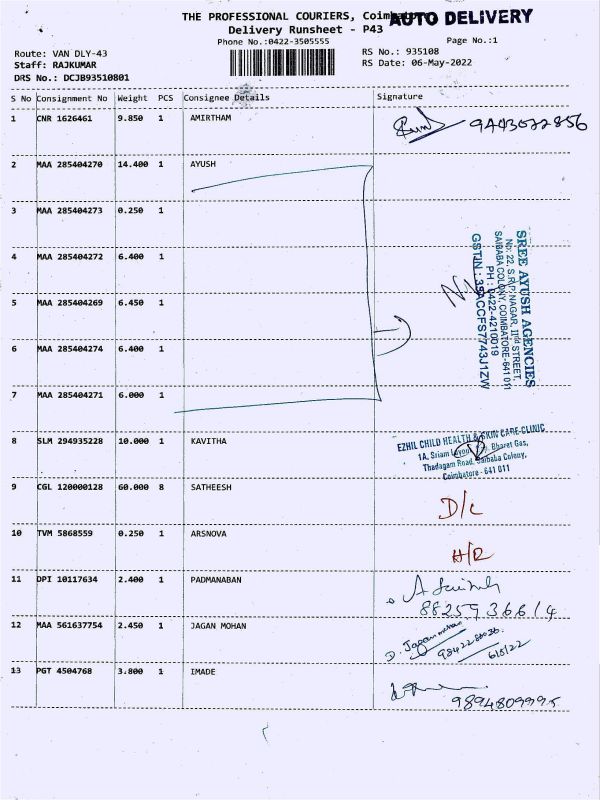 THE PROFESSIONAL COURIERS, Coimbatore
AUTO DELIVERY
Delivery Runsheet - P43
Phone No.:0422-3505555
Page No.:1
Route: VAN DLY-43
RS No.: 935108
Staff: RAJKUMAR
RS Date: 06-May-2022
DRS No.: DCJB93510801
S No Consignment No Weight PCS Consignee Details Signature
1 CNR 1626461 9.850 1 AMIRTHAM
9443022856
2 MAA 285404270 14.400 1 AYUSH
3 MAA 285404273 0.250 1
4 MAA 285404272 6.400 1
5 MAA 285404269 6.450 1
6 MAA 285404274 6.400 1
7 MAA 285404271 6.000 1
SREE AYUSH AGENCIES
No: 22, S.R.P. NAGAR, IInd STREET,
SAIBABA COLONY, COIMBATORE-641 011
PH : 0422-4210019
GSTIN : 33ACCFS7743J1ZW
8 SLM 294935228 10.000 1 KAVITHA
EZHIL CHILD HEALTH & SKIN CARE CLINIC
1A, Sriam Layout, Bharet Gas,
Thadagam Road, Saibaba Colony,
Coimbatore - 641 011
9 CGL 120000128 60.000 8 SATHEESH
D/L
10 TVM 5868559 0.250 1 ARSNOVA
H/R
11 DPI 10117634 2.400 1 PADMANABAN
8825936614
12 MAA 561637754 2.450 1 JAGAN MOHAN
D. Jagan mohan
6/5/22
13 PGT 4504768 3.800 1 IMADE
9894809995